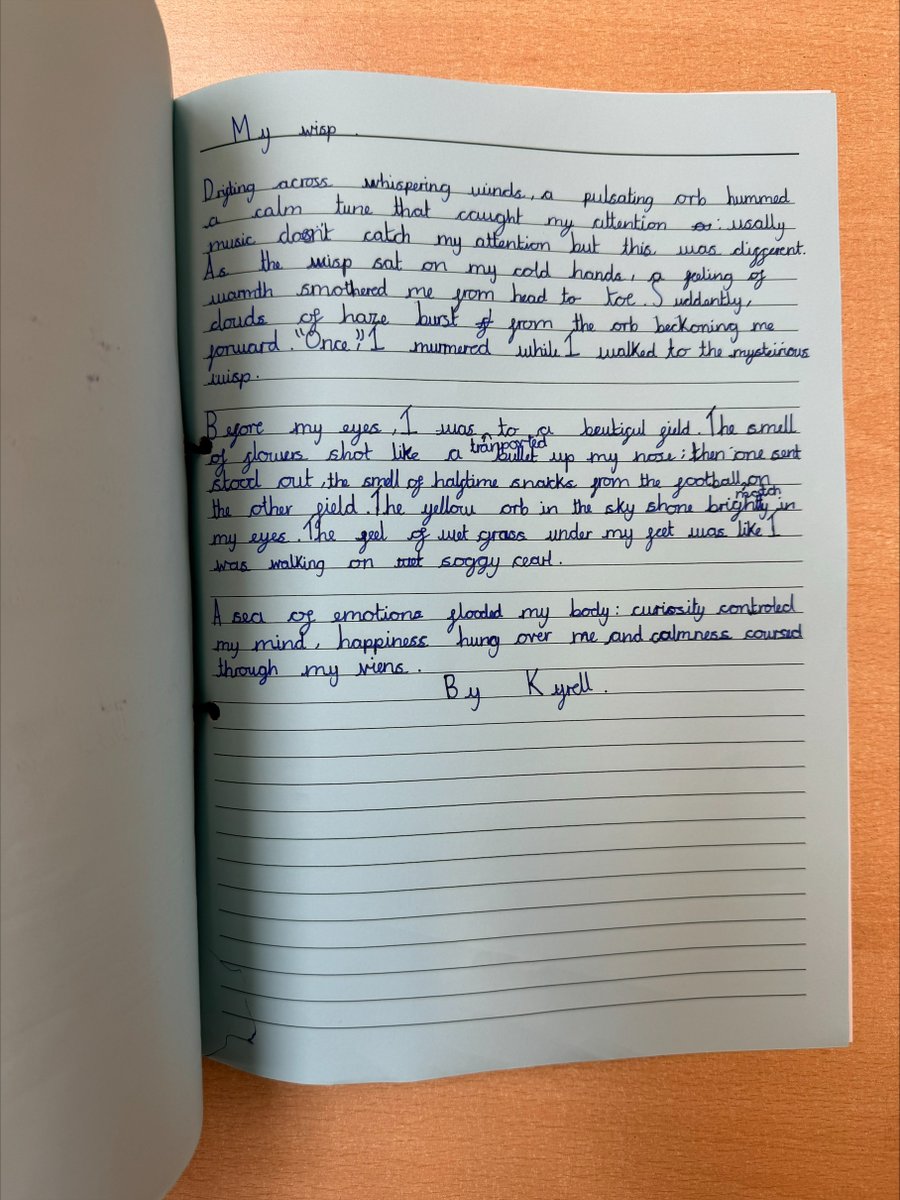 My wisp.
Drifting across whispering winds, a pulsating orb hummed
a calm tune that caught my attention : usally
music dosn't catch my attention but this was different.
As the wisp sat on my cold hands, a feeling of
warmth smothered me from head to toe. Suddently,
clouds of haze burst from the orb beckoning me
forward. "Once", I murmered while I walked to the mysteirious
wisp.
Before my eyes, I was tranported to a beutiful field. The smell
of flowers shot like a bullet up my nose; then one sent
stood out, the smell of halftime snacks from the football match on
the other field. The yellow orb in the sky shone brightly in
my eyes. The feel of wet grass under my feet was like I
was walking on soggy cearl.
A sea of emotions flooded my body: curiosity controled
my mind, happiness hung over me and calmness coursed
through my viens.
By Kyrell.